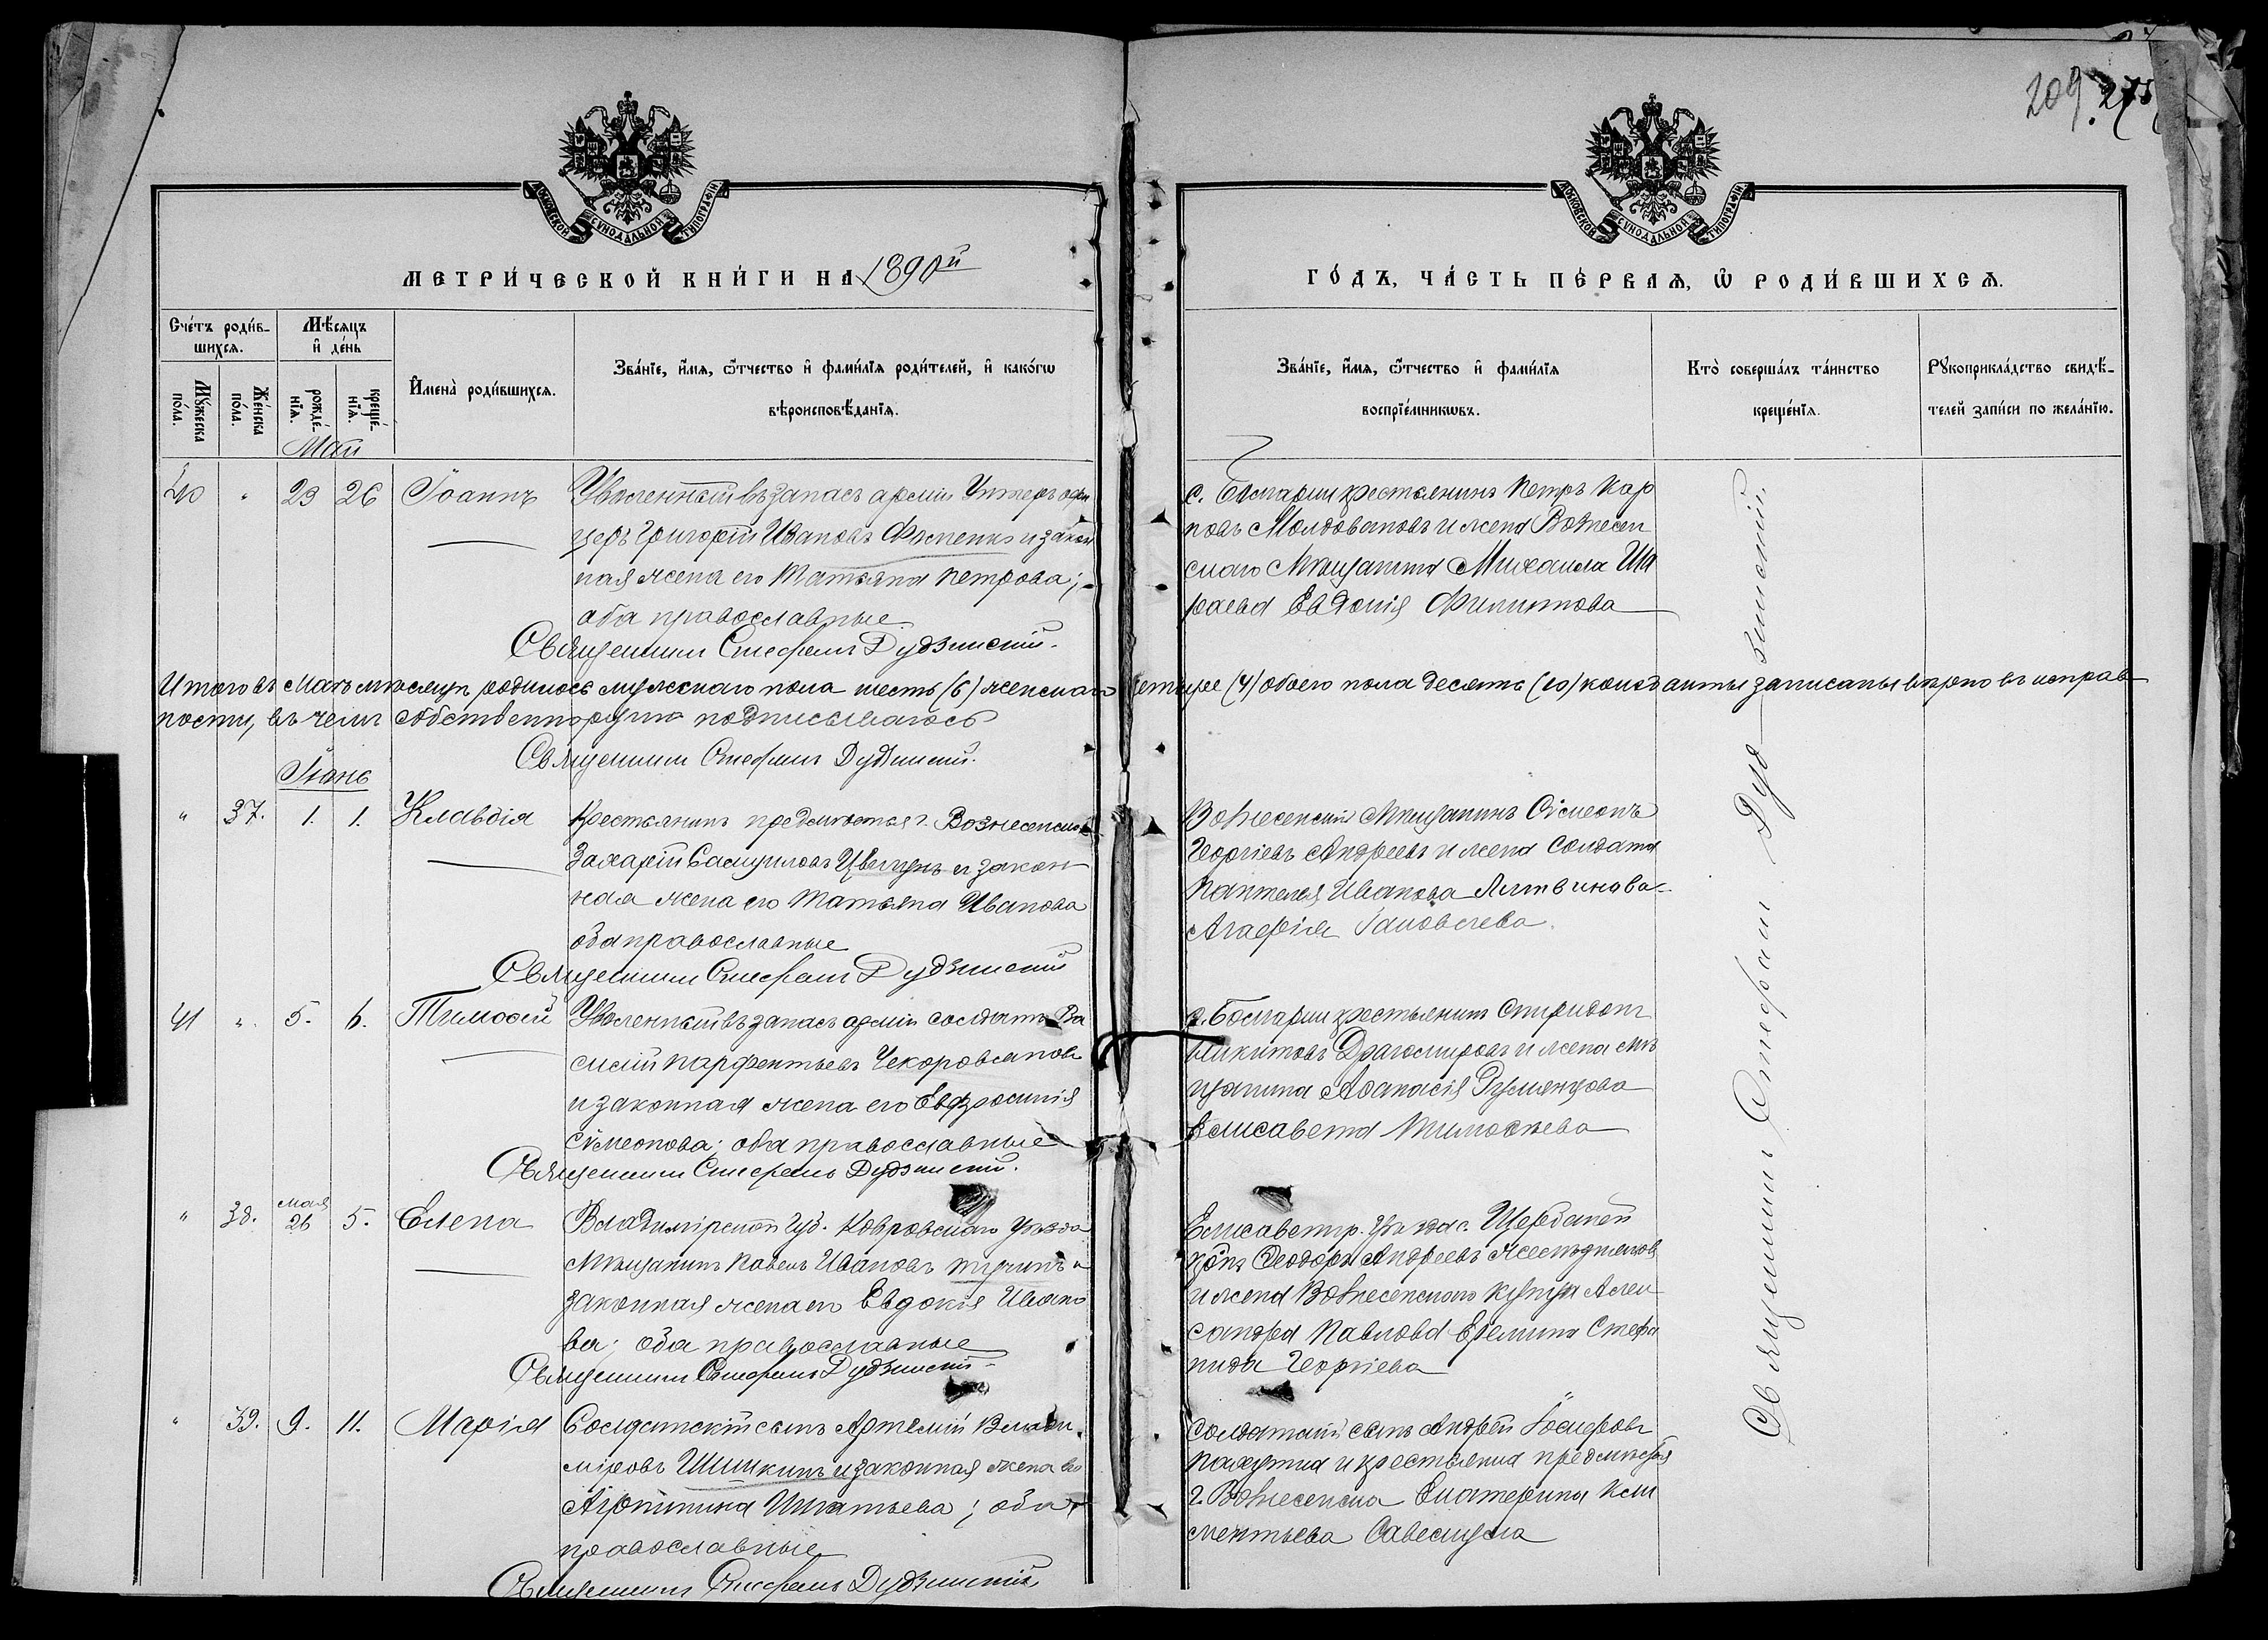 209.
275
МОСКОВСКОЙ СѴНОДАЛЬНОЙ ТИПОГРАФІИ
МОСКОВСКОЙ СѴНОДАЛЬНОЙ ТИПОГРАФІИ
МЕТРИ́ЧЕСКОЙ КНИ́ГИ НА 1890й
ГО́ДЪ, ЧА́СТЬ ПЕ́РВАѦ, Ѿ РОДИ́ВШИХСѦ.
Сче́тъ роди́в-
шихсѧ.
Мѣ́сѧцъ
и҆ де́нь
И҆мена̀ роди́вшихсѧ.
Зва́нїе, и҆́мѧ, ѻ҆́тчество и҆ фами́лїѧ роди́телей, и҆ како́гѡ
вѣроисповѣ́данїѧ.
Зва́нїе, и҆́мѧ, ѻ҆́тчество и҆ фами́лїѧ
воспрїе́мникѡвъ.
Кто̀ соверша́лъ та́инство
креще́нїѧ.
Рꙋкоприкла́дство свидѣ́-
телей за́писи по жела́нїю.
Мꙋ́жеска
по́ла.
Же́нска
по́ла.
рожде́-
нїѧ.
креще́-
нїѧ.
Май
40 " 23 26 Іоаннъ Уволенный въ запасъ арміи Унтеръ офи
церъ Григорій Ивановъ Фоменко и закон
ная жена его Татьяна Петрова;
оба православные
Священникъ Стефанъ Дудзинскій.
с. Болгарки крестьянинъ Петръ Кар
повъ Молдовановъ и жена Вознесен
скаго Мѣщанина Михаила Ша
раева Евдокія Филиппова
Итого въ маѣ мѣсяцѣ родилось мужскаго пола шесть (6) женскаго четыре (4) обоего пола десять (10) кои записаны вѣрно въ исправ
ности, въ чемъ собственноручно подписываюсь
Священникъ Стефанъ Дудзинскій.
Іюнь
" 37. 1. 1. Клавдія Крестьянинъ предмѣстья г. Вознесенска
Захарій Самуиловъ и закон
ная жена его Татьяна Иванова
оба православные
Священникъ Стефанъ Дудзинскій
Вознесенскій Мѣщанинъ Сѵмеонъ
Георгіевъ Андреевъ и жена солдата
Пантелея Иванова Литвинова
Агафія Іаковлева.
41 " 5. 6. Тимоѳей Уволенный въ запасъ арміи солдатъ Ва
силій Парфентьевъ
и законная жена его Евфросинія
Сѵмеонова; оба православные
Священникъ Стефанъ Дудзинскій.
с. Болгарки крестьянинъ Спиридонъ
Никитовъ Драгомировъ и жена мѣ
щанина Аѳанасія Румянцова
Елисавета Тимоѳеева
" 38. мая 26 5. Елена Владимірской Губ. Ковровскаго уѣзда
Мѣщанинъ Павелъ Ивановъ и
законная жена его Евдокія Ивано
ва; оба православные
Священникъ Стефанъ Дудзинскій
Елисаветгр. уѣзда с. Щербаней
Ѳеодоръ Андреевъ
и жена Вознесенскаго купца Алек
сандра Павлова Еремина Стефа
нида Георгіева
" 39. 9. 11. Марія Солдатскій сынъ Артемій Влади
міровъ Шишкинъ и законная жена его
Агрипина Игнатьева; оба
православные
Священникъ Стефанъ Дудзинскій
Солдатскій сынъ Андрей Іосифовъ
и крестьянка предмѣстья
г. Вознесенска Екатерина Кли
ментьева
Священникъ Стефанъ Дудзинскій.